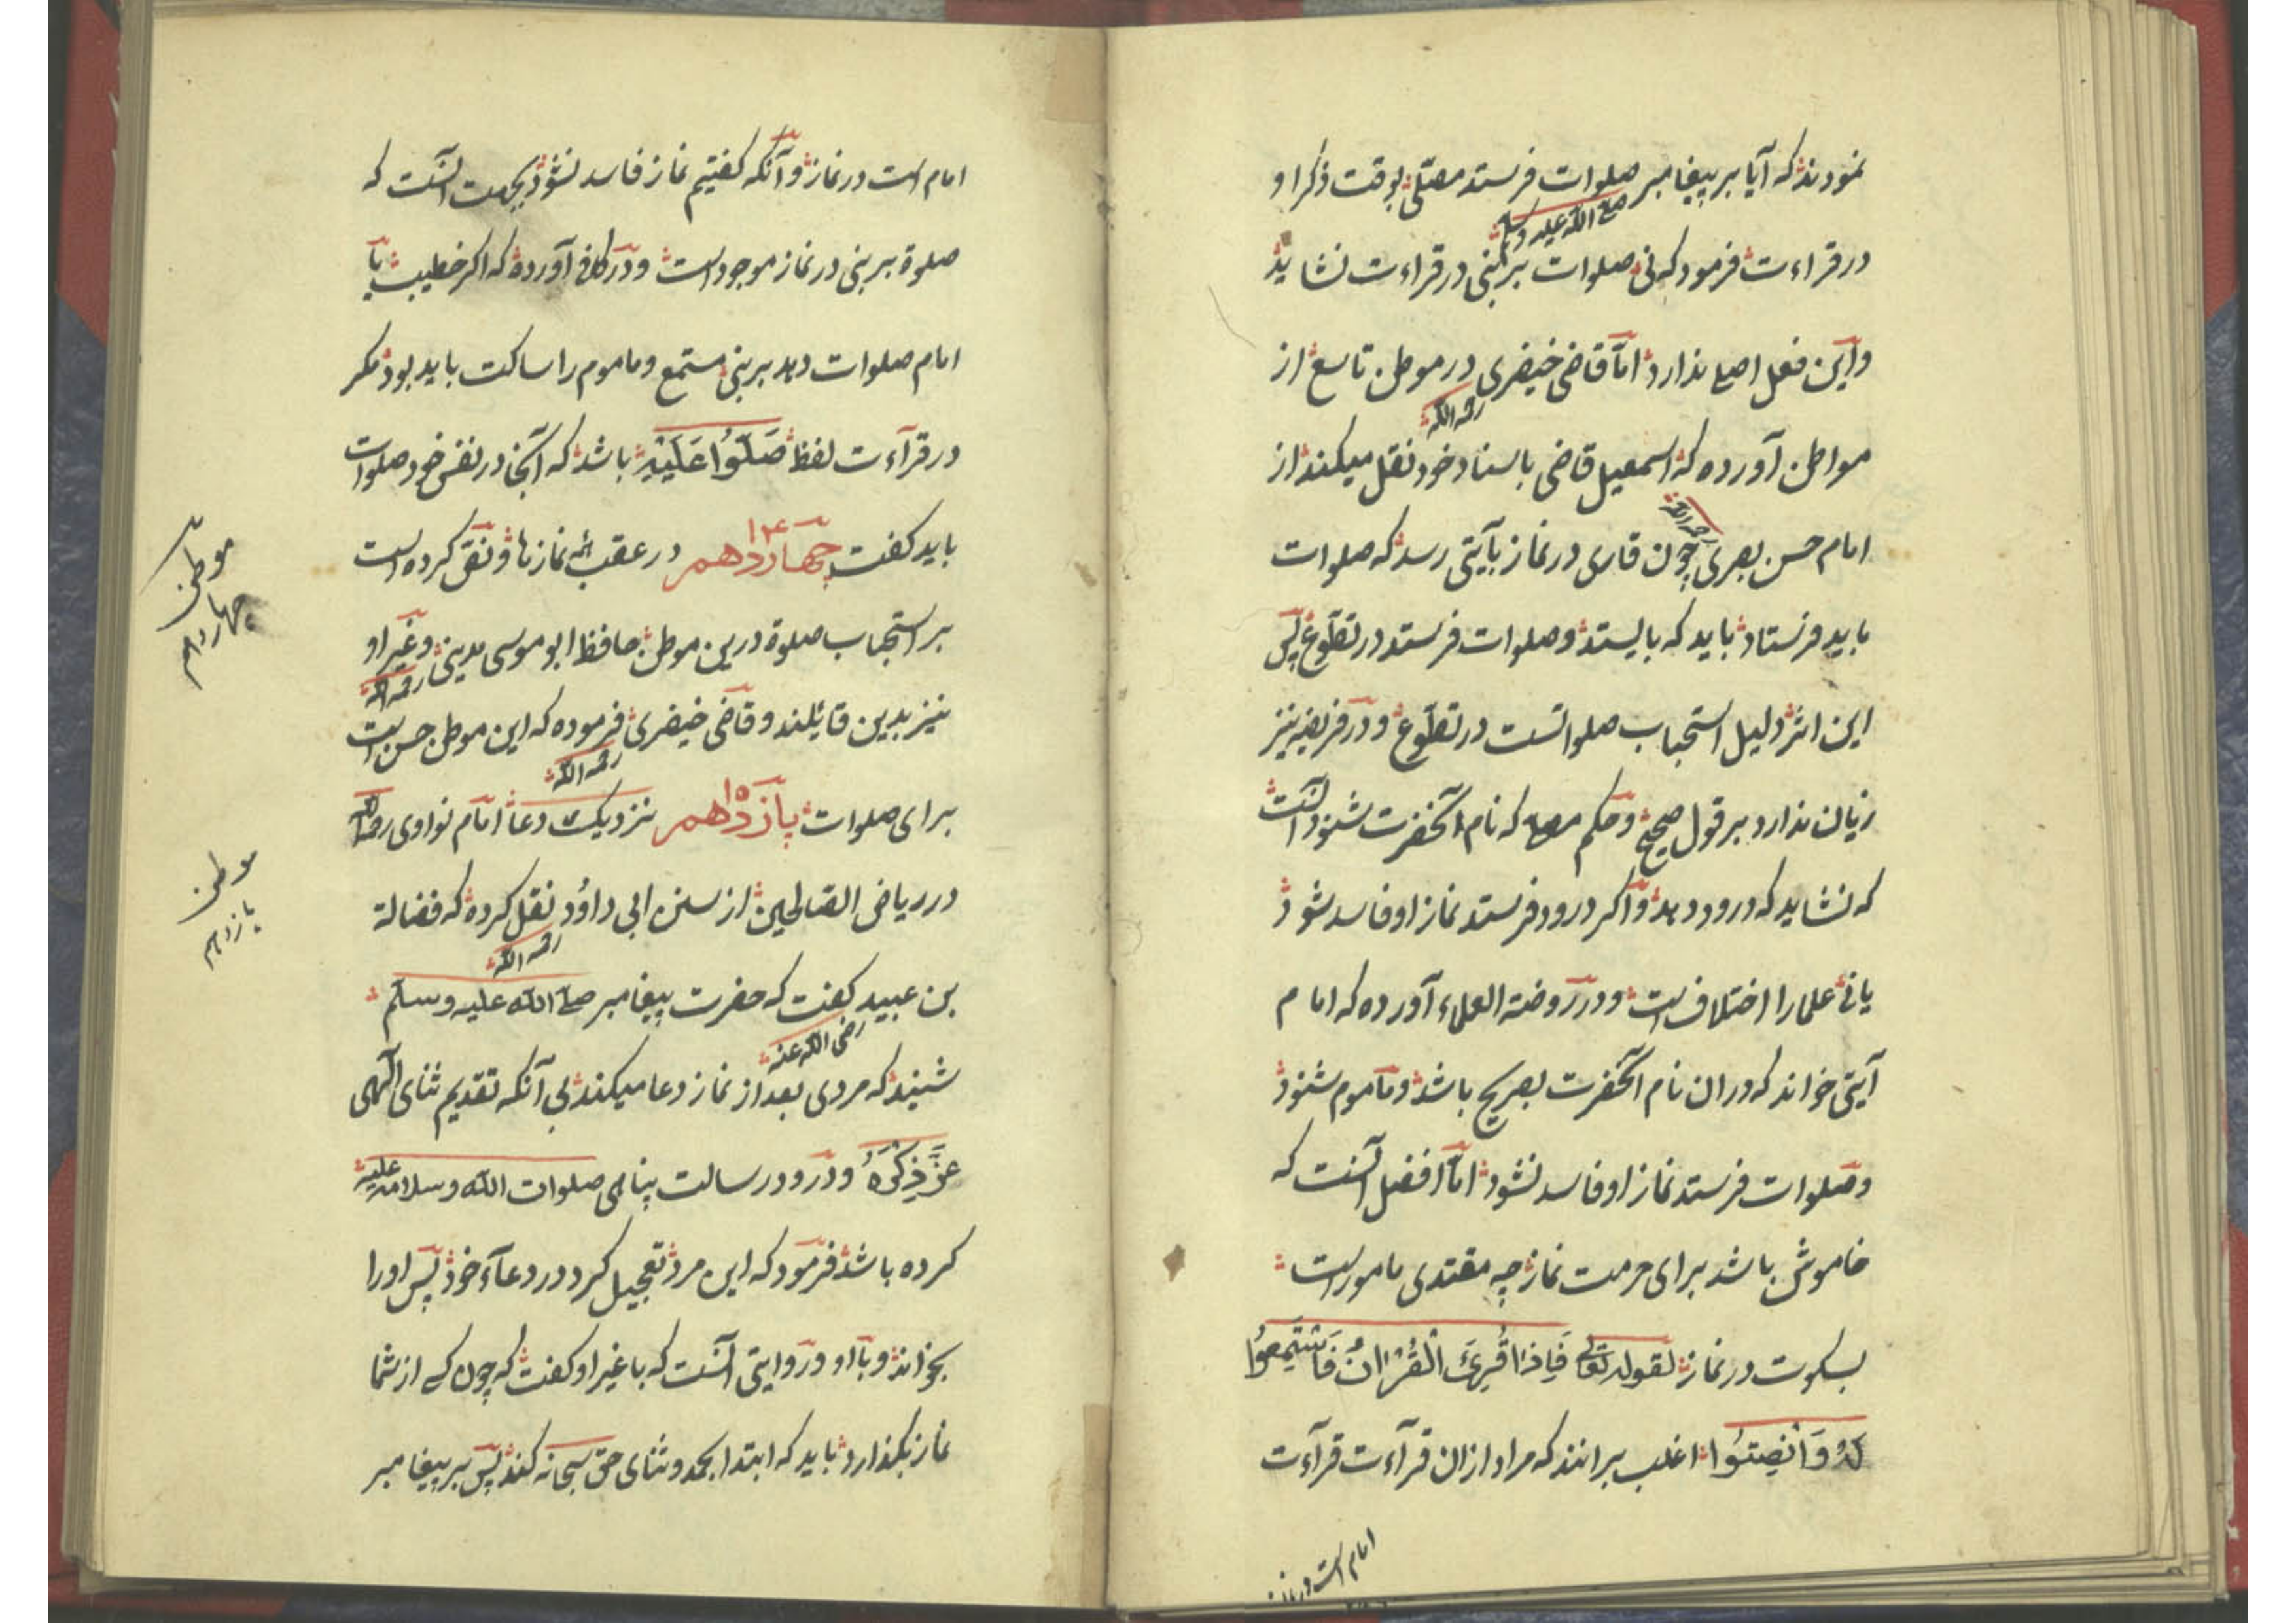 نمودند که آیا بر پیغامبر صلوات فرستد مصلّی بوقت ذکر او
صلی الله علیه وسلم
در قراءت فرمود که نی صلوات بر نبی در قراءت نشاید
واین فعل اصلی ندارد امّا قاضی خیضری در موطن تاسع از
رحمه الله
مواطن آورده که اسمعیل قاضی باسناد خود نقل میکند از
امام حسن بصری چون قاری در نماز بآیتی رسد که صلوات
رحمه الله
باید فرستاد باید که بایستد وصلوات فرستد در تطوّع پس
این اثر دلیل استحباب صلواتست در تطوّع و در فریضه نیز
زیان ندارد بر قول صحیح وحکم مصلی که نام آنحضرت شنود آنست
که نشاید که درود دهد واگر درود فرستد نماز او فاسد شود
یا نی علما را اختلاف است ودر روضة العلماء آورده که امام
آیتی خواند که دران نام آنحضرت بصریح باشد وماموم شنود
وصلوات فرستد نماز او فاسد نشود امّا افضل آنست که
خاموش باشد برای حرمت نماز چه مقتدی مامور است
بسکوت در نماز لقوله تعالی فَاِذَا قُرِئَ الْقُرْاٰنُ فَاسْتَمِعُوا
لَهُ وَاَنْصِتُوا اغلب برانند که مراد ازان قرآءت قرآءت
امام است در نماز
امام است در نماز وآنکه کفتیم نماز فاسد نشود بجهت آنست که
صلوة بر نبی در نماز موجود است ودر کافی آورده که اکر خطیب یا
امام صلوات دهد بر نبی مستمع وماموم را ساکت باید بود مکر
در قرآءت لفظ صَلُّوا عَلَيْهِ باشد که آنجا در نفس خود صلوات
باید کفت چهاردهم ۱۴ در عقب همه نمازها ونقل کرده است
موطن چهاردهم
بر استحباب صلوة درین موطن حافظ ابو موسی مدینی وغیر او
رحمه الله
نیز بدین قایلند وقاضی خیضری فرموده که این موطن حسن است
رحمه الله
برای صلوات پانزدهم ۱۵ نزدیک دعا امام نواوی رحمه الله
موطن پانزدهم
در ریاض الصّالحین از سنن ابی داوُد نقل کرده که فضالة
رحمه الله
بن عبید کفت که حضرت پیغامبر صلی الله علیه وسلم
رضی الله عنه
شنید که مردی بعد از نماز دعا میکند بی آنکه تقدیم ثنای الهی
عَزَّ ذِكْرُهُ ودرود رسالت پناهی صلوات الله وسلامه علیه
کرده باشد فرمود که این مرد تعجیل کرد در دعآء خود پس او را
بخواند وبا او و در روایتی آنست که با غیر او کفت که چون کسی از شما
نماز بکذارد باید که ابتدا بحمد وثنای حق سبحانه کند پس بر پیغامبر